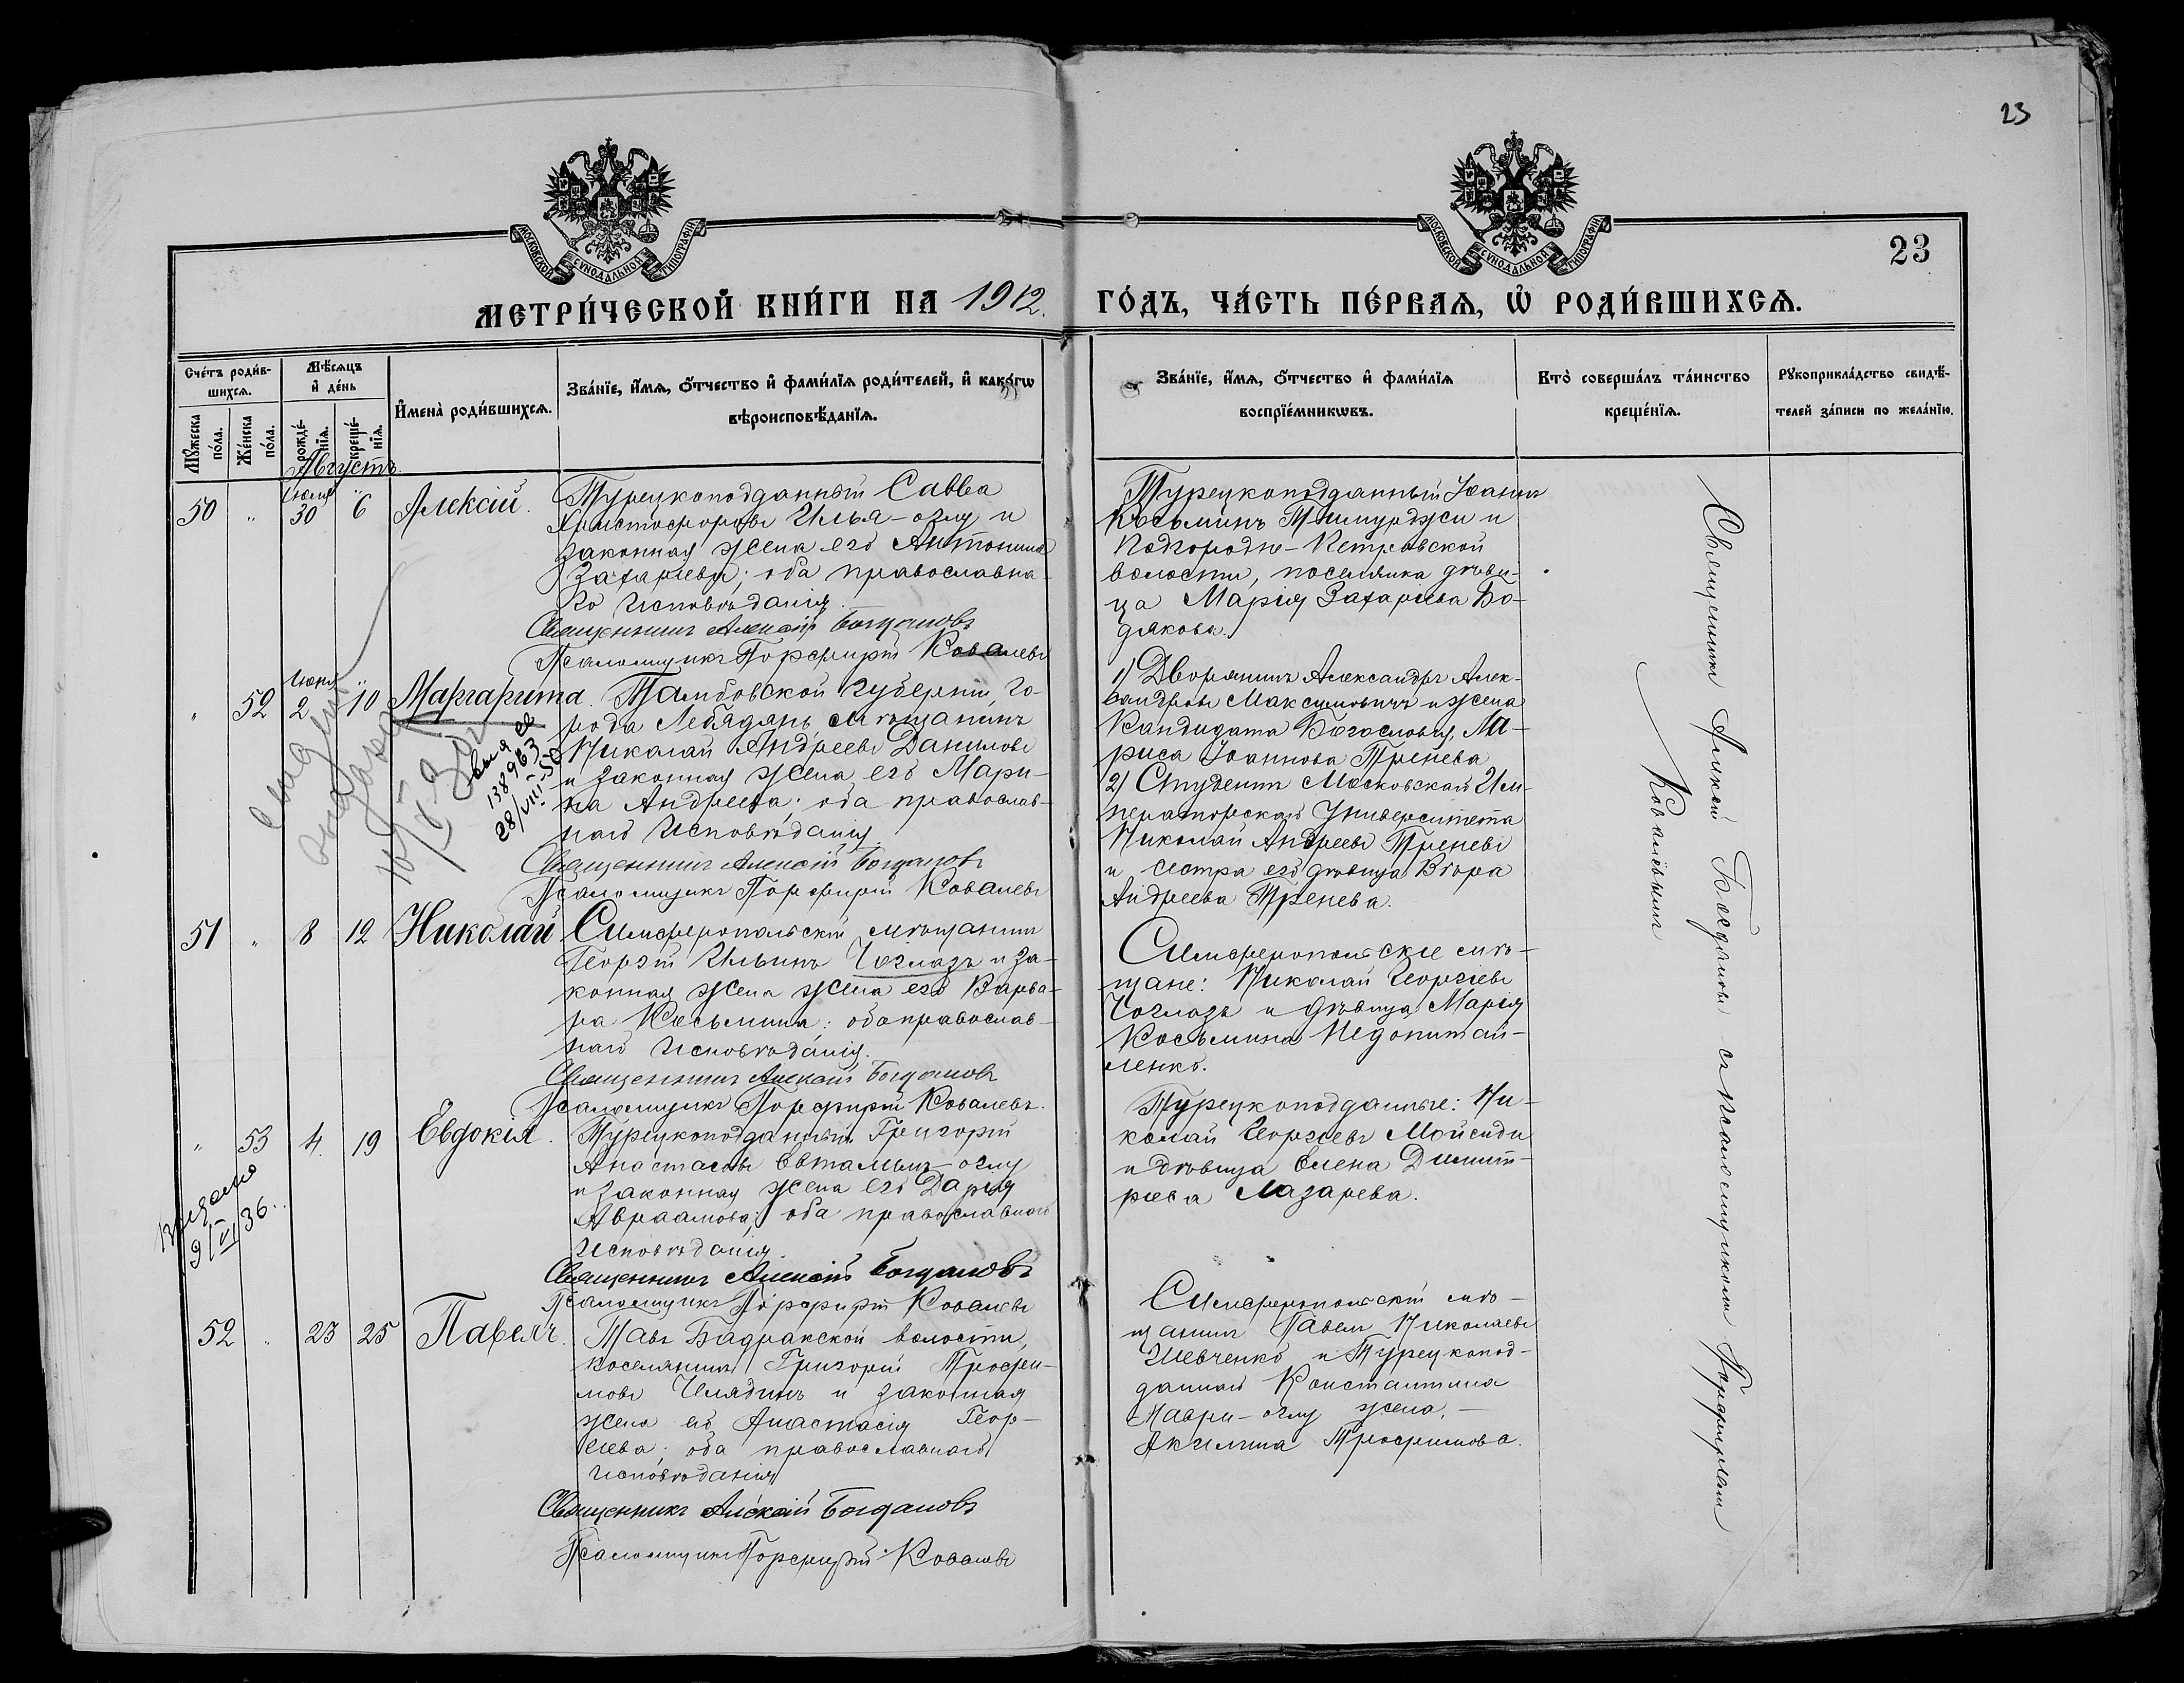 23
МОСКОВСКОЙ СѴНОДАЛЬНОЙ ТИПОГРАФІИ.
МОСКОВСКОЙ СѴНОДАЛЬНОЙ ТИПОГРАФІИ.
23
МЕТРИ́ЧЕСКОЙ КНИ́ГИ НА 1912.
ГО́ДЪ, ЧА́СТЬ ПЕ́РВАѦ, Ѡ҆ РОДИ́ВШИХСѦ.
Сче́тъ роди́в-
шихсѧ.
Мѣ́сѧцъ
и҆ де́нь
И҆мена̀ роди́вшихсѧ.
Зва́нїе, и҆́мѧ, ѻ҆́тчество и҆ фами́лїѧ роди́телей, и҆ како́гѡ
вѣроисповѣ́данїѧ.
Мꙋ́жеска по́ла.
Же́нска по́ла.
рожде́нїѧ.
креще́нїѧ.
Зва́нїе, и҆́мѧ, ѻ҆́тчество и҆ фами́лїѧ
воспрїе́мникѡвъ.
Кто̀ соверша́лъ та́инство
креще́нїѧ.
Рꙋкоприкла́дство свидѣ́-
телей за́писи по жела́нїю.
Августъ.
50 " Іюля 30 6 Алексій.
Турецкоподданный Савва
Христофоровъ Илья-оглу и
законная жена его Антонина
Захаріева; оба православна-
го исповѣданія.
Священникъ Алексій Богдановъ
Псаломщикъ Порфирій Ковалевъ
Турецкоподданный Іоаннъ
Косьминъ и
Подгородне-Петровской
волости, поселянка дѣви-
ца Марія Захаріева Бо-
дякова.
" 52 2 10 Маргарита.
Тамбовской губерніи, го-
рода Лебядянь мѣщанинъ
Николай Андреевъ Даниловъ
и законная жена его Мари-
на Андреева; оба православ-
наго исповѣданія
Священникъ Алексій Богдановъ
Псаломщикъ Порфирій Ковалевъ
138963
28/VIII-50
1) Дворянинъ Александръ Алек-
сандровъ Максимовичъ и жена
Кандидата Богословія, Ла-
риса Іоаннова Тренева
2) Студентъ Московскаго Им-
ператорскаго Университета
Николай Андреевъ Треневъ
и сестра его дѣвица Вѣра
Андреева Тренева.
51 " 8 12 Николай
Симферопольскій мѣщанинъ
Георгій Ильинъ Чоглазъ и за-
конная жена жена его Варва-
ра Косьмина: оба православ-
наго исповѣданія.
Священникъ Алексій Богдановъ
Псаломщикъ Порфирій Ковалевъ.
Симферопольскіе мѣ-
щане: Николай Георгіевъ
Чоглазъ и дѣвица Марія
Косьмина Недопитай-
ленко.
" 53 4 19 Евдокія.
Турецкоподданный Григорій
Анастасовъ Евтальмъ-оглу
и законная жена его Дарья
Авраамова; оба православнаго
исповѣданія.
Священникъ Алексій Богдановъ
Псаломщикъ Порфирій Ковалевъ
Выдано
9/VI 36.
Турецкоподданные: Ни-
колай Георгіевъ Мойсиди
и дѣвица Елена Димит-
ріева Лазарева.
52 " 23 25 Павелъ.
Тавъ Бадракской волости,
поселянинъ Григорій Трофи-
мовъ Челядинъ и законная
жена его Анастасія Геор-
гіева; оба православнаго
исповѣданія
Священникъ Алексій Богдановъ
Псаломщикъ Порфирій Ковалевъ
Симферопольскій мѣ-
щанинъ Павелъ Николаевъ
Шевченко и Турецкопод-
даннаго Константина
Маври-оглу жена,-
Акилина Трофимова.
Священникъ Алексій Богдановъ съ псаломщикомъ Порфиріемъ
Ковалевымъ